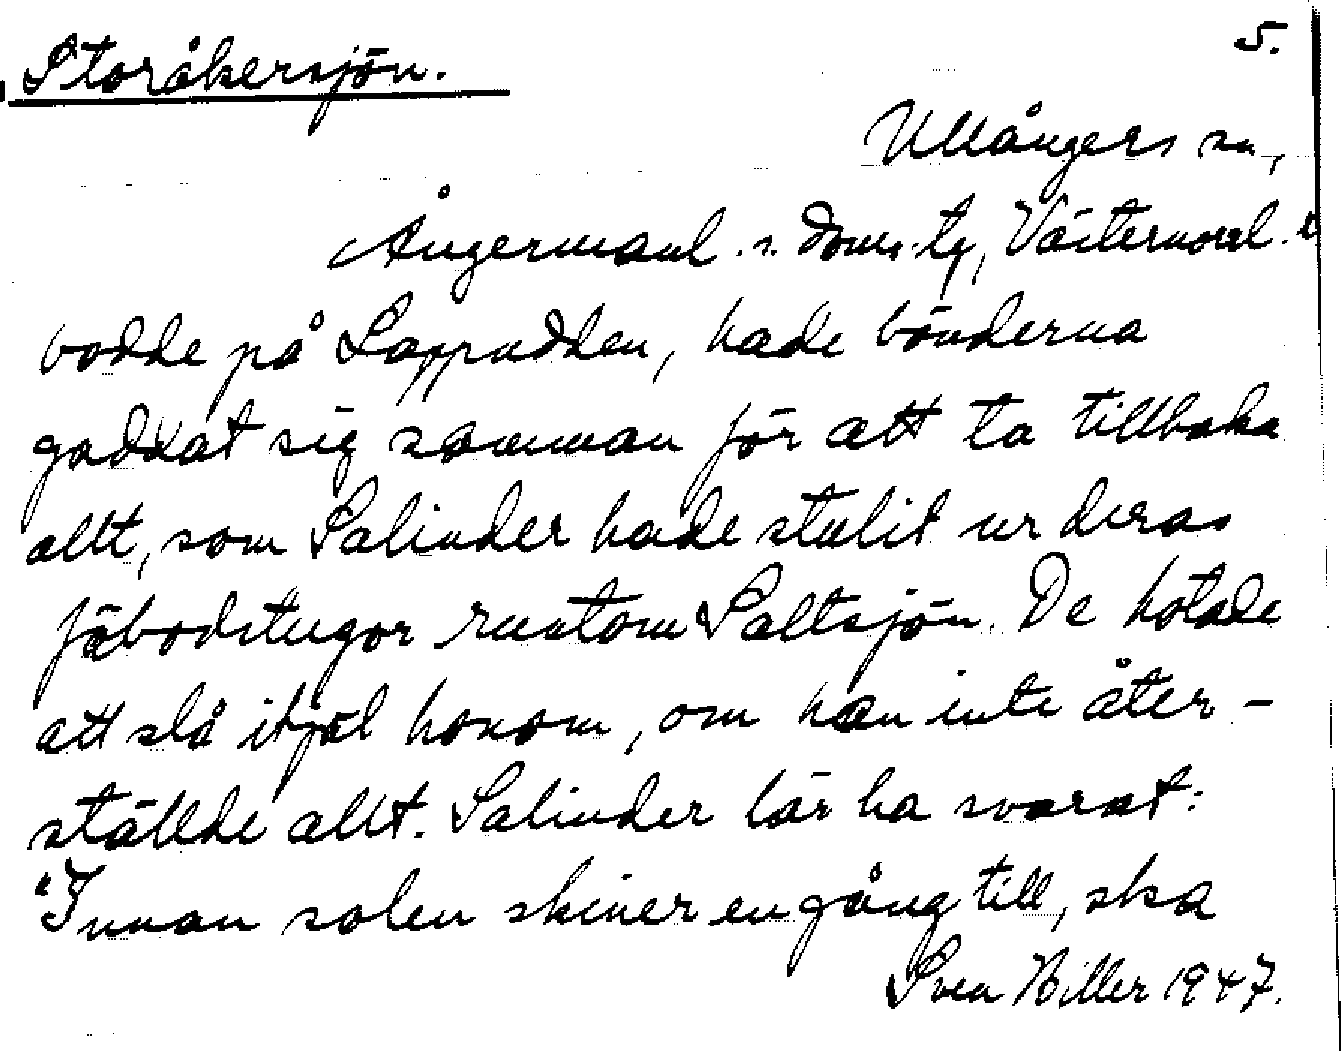 Storåkersjön.
5.
Ullångers sn,
Ångermanl. s. doms. tg, Västernorrl.
bodde på Lappudden, hade bönderna
gaddat sig samman för att ta tillbaka
allt, som Salinder hade stulit ur deras
fäbodstugor runtom Saltsjön. De hotade
att slå ihjäl honom, om han inte åter-
ställde allt. Salinder lär ha svarat:
"Innan solen skiner en gång till, ska
Sven Hiller 1947.